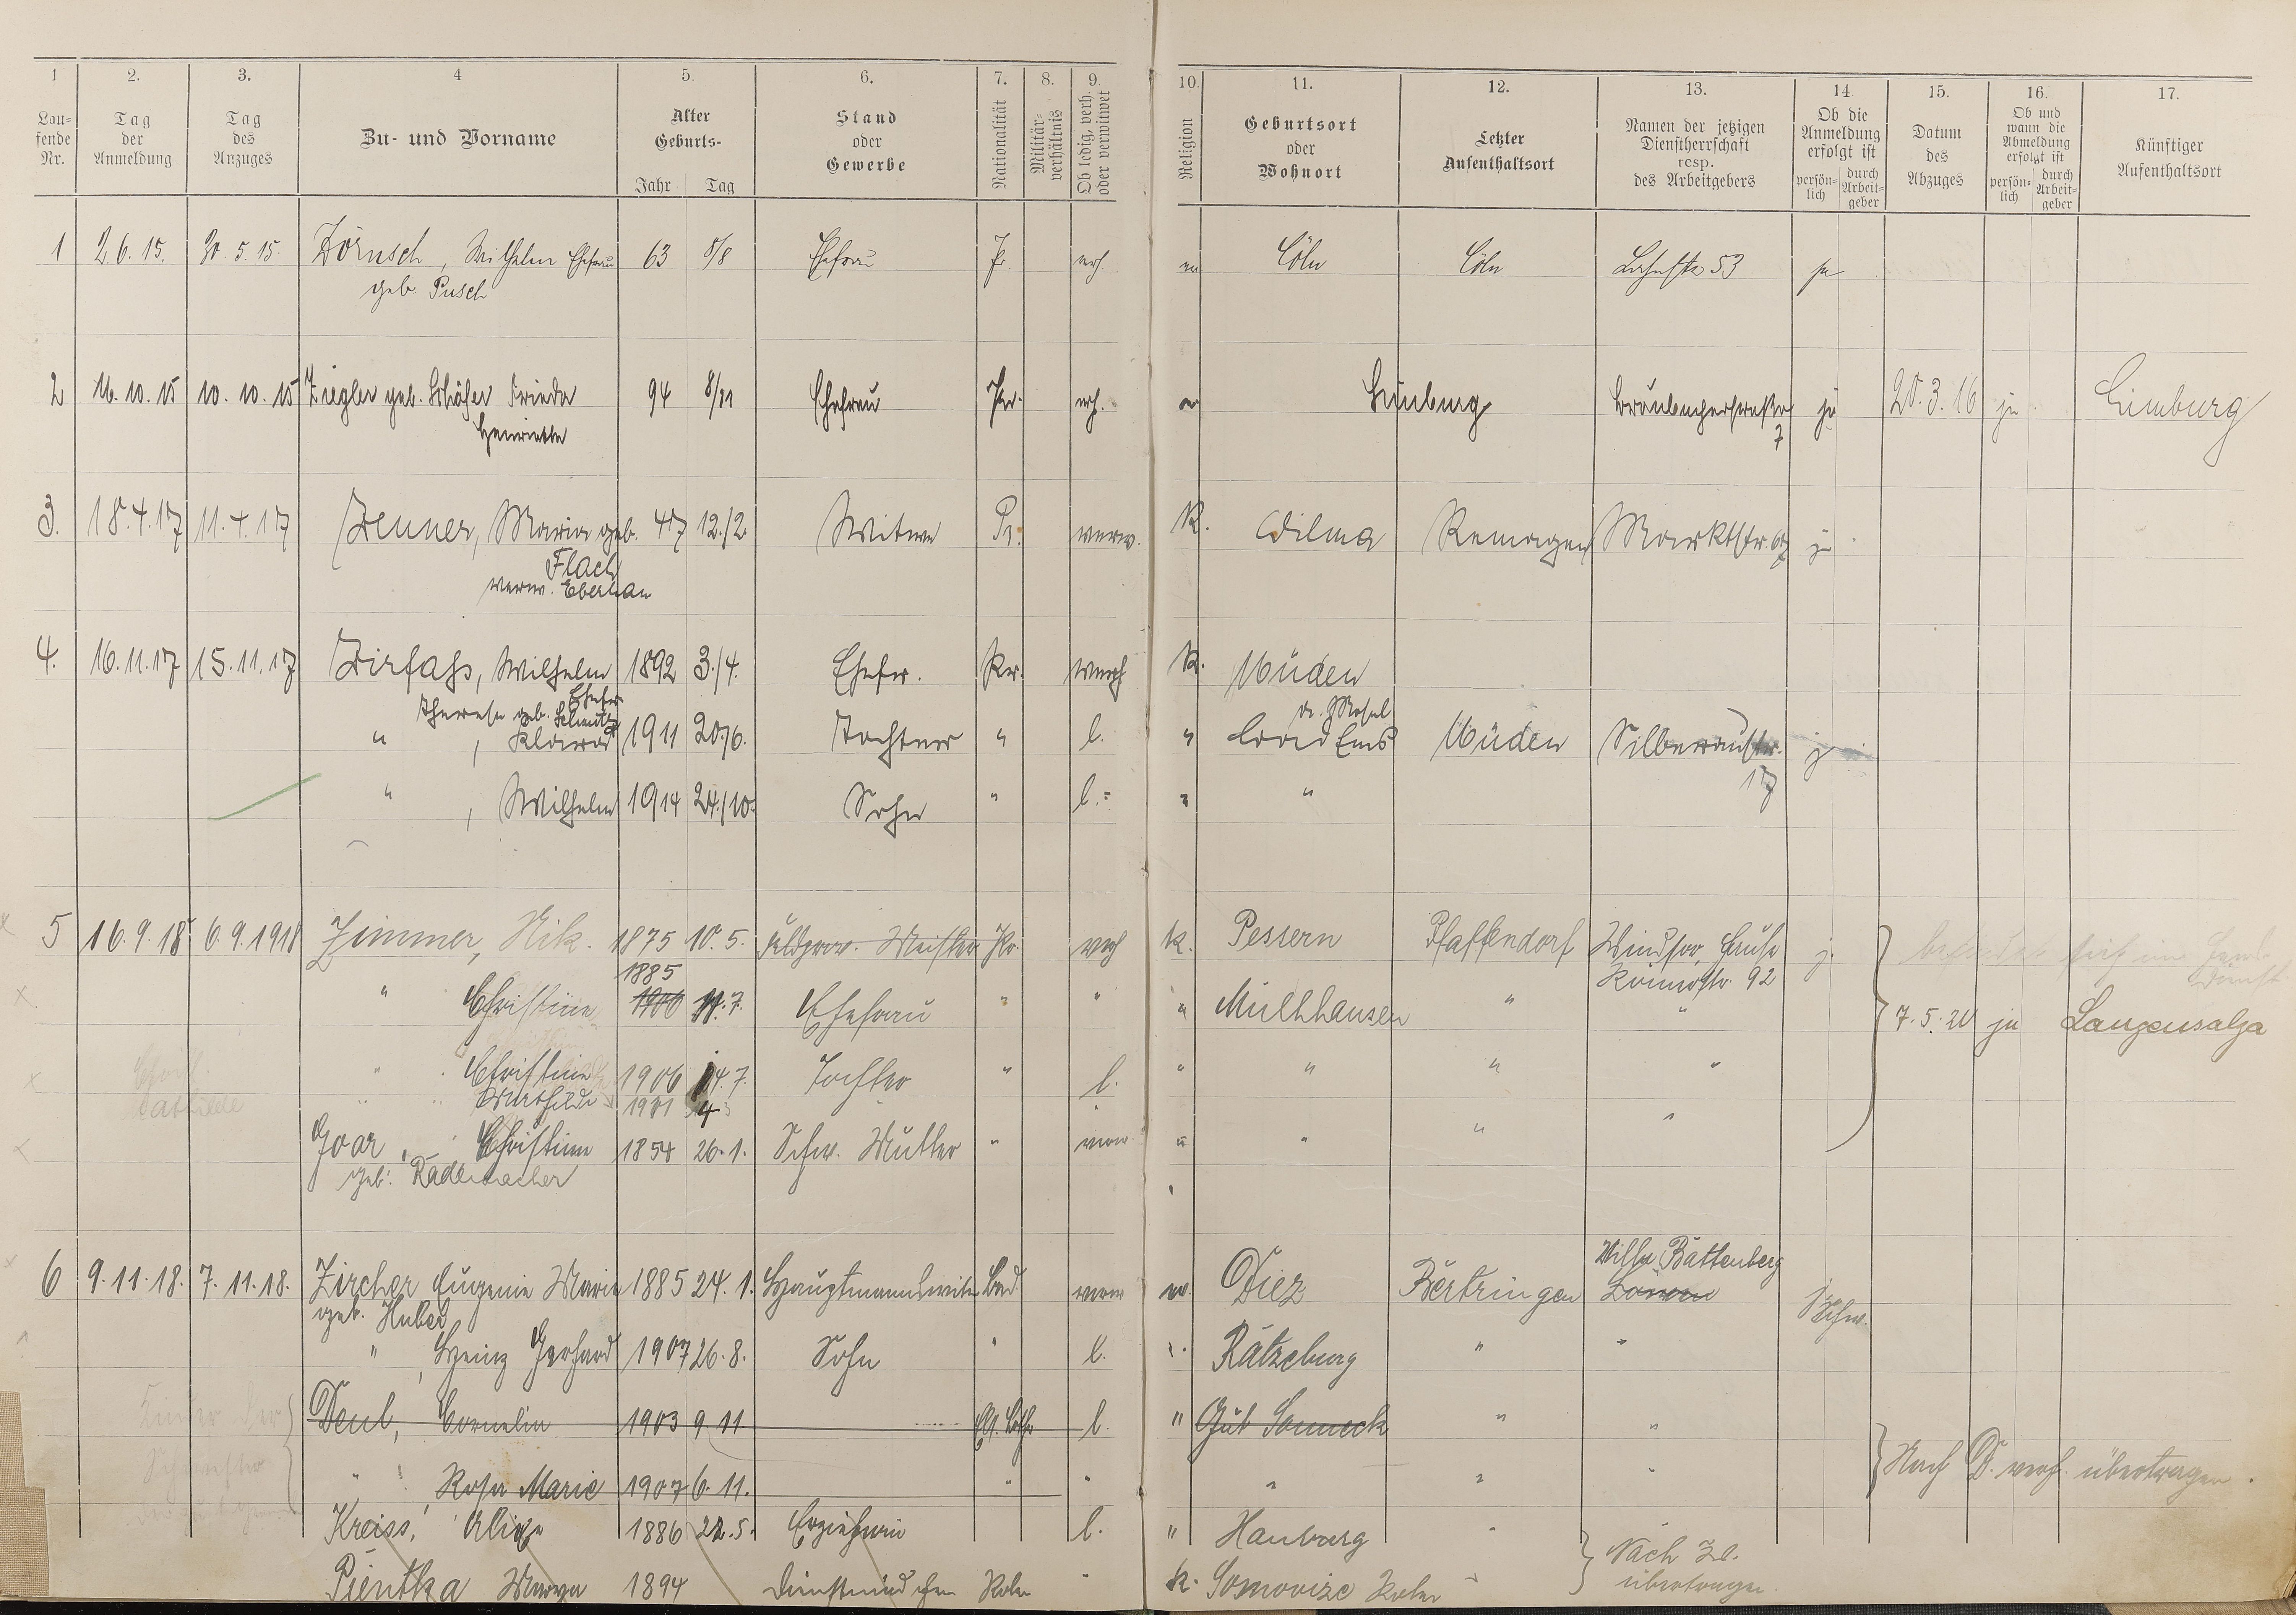 1 2. 3. 4 5. 6. 7. 8. 9. 10. 11. 12. 13. 14. 15. 16. 17.
Lau-fende Nr.
Tag der Anmeldung
Tag des Anzuges
Zu- und Vorname
Alter Geburts- Jahr Tag
Stand oder Gewerbe
Nationalität
Militär-verhältnis
Ob ledig, verh. oder verwitwet
Religion
Geburtsort oder Wohnort
Letzter Aufenthaltsort
Namen der jetzigen Dienstherrschaft resp. des Arbeitgebers
Ob die Anmeldung erfolgt ist persön-lich durch Arbeit-geber
Datum des Abzuges
Ob und wann die Abmeldung erfolgt ist persön-lich durch Arbeit-geber
Künftiger Aufenthaltsort
1 2.6.15. 30.5.15. Zörnsch, Wilhelm Ehefrau 63 8/8 Ehefrau Pr. verh. Cöln Cöln Lahnstr 53 ja
geb. Pusch
2 16.10.15 10.10.15 Ziegler geb. Schäfer Frieda 94 8/11 Ehefrau Pr. verh. Limburg Braubacherstraße ja 20.3.16 ja Limburg
Henriette 7
3. 18.4.17 11.4.17 Zenner, Maria geb. 47 12./2 Witwe Pr. verw. K. Wilma Remagen Marktstr. 67 j
Flach
verw. Eberhan
4. 16.11.17 15.11.17 Zirfass, Wilhelm 1892 3./4. Ehefr. Pr. verh K. Müden
Ehefr.
Therese geb. Schmitz a. d. Mosel
" , Klara 1911 20./6. Tochter " l. " Bad Ems Müden Silberaustr. j
17
" , Wilhelm 1914 24./10. Sohn " l. " "
5 16.9.18 6.9.1918 Zimmer, Nik. 1875 10.5. Meister Pr. verh K. Pessern Pfaffendorf Windsor, Haus j.
1885 Römerstr. 92
" Christine 1906 11.7. Ehefrau " " " Mülhhausen " " 7.5.20 ja Langensalza
" Christine 1906 14.7. Tochter " l. " " " "
" " Mathilde 1901 4
Mathilde
Goar, Christine 1854 26.1. Schw. Mutter " verw " " " "
geb. Radermacher
Villa Battenberg
6 9.11.18. 7.11.18. Zircher Eugenie Marie 1885 24.1. Hauptmannswitwe Bad. verw Diez Bertringen
geb. Huber
" , Heinz Gerhard 1907 26.8. Sohn " l. " Ratzeburg " "
Deul, Cornelia 1903 9.11 Els. Lothr l. " Gut Sonneck " "
" Rosa Marie 1907 6.11. " " " " " Nach D. verh. übertragen.
Kreiss, 1886 22.5. Erzieherin l. " Hamburg " Nach Zl.
Pientka 1894 Dienstmädchen Polen " k. Somovize Polen übertragen.